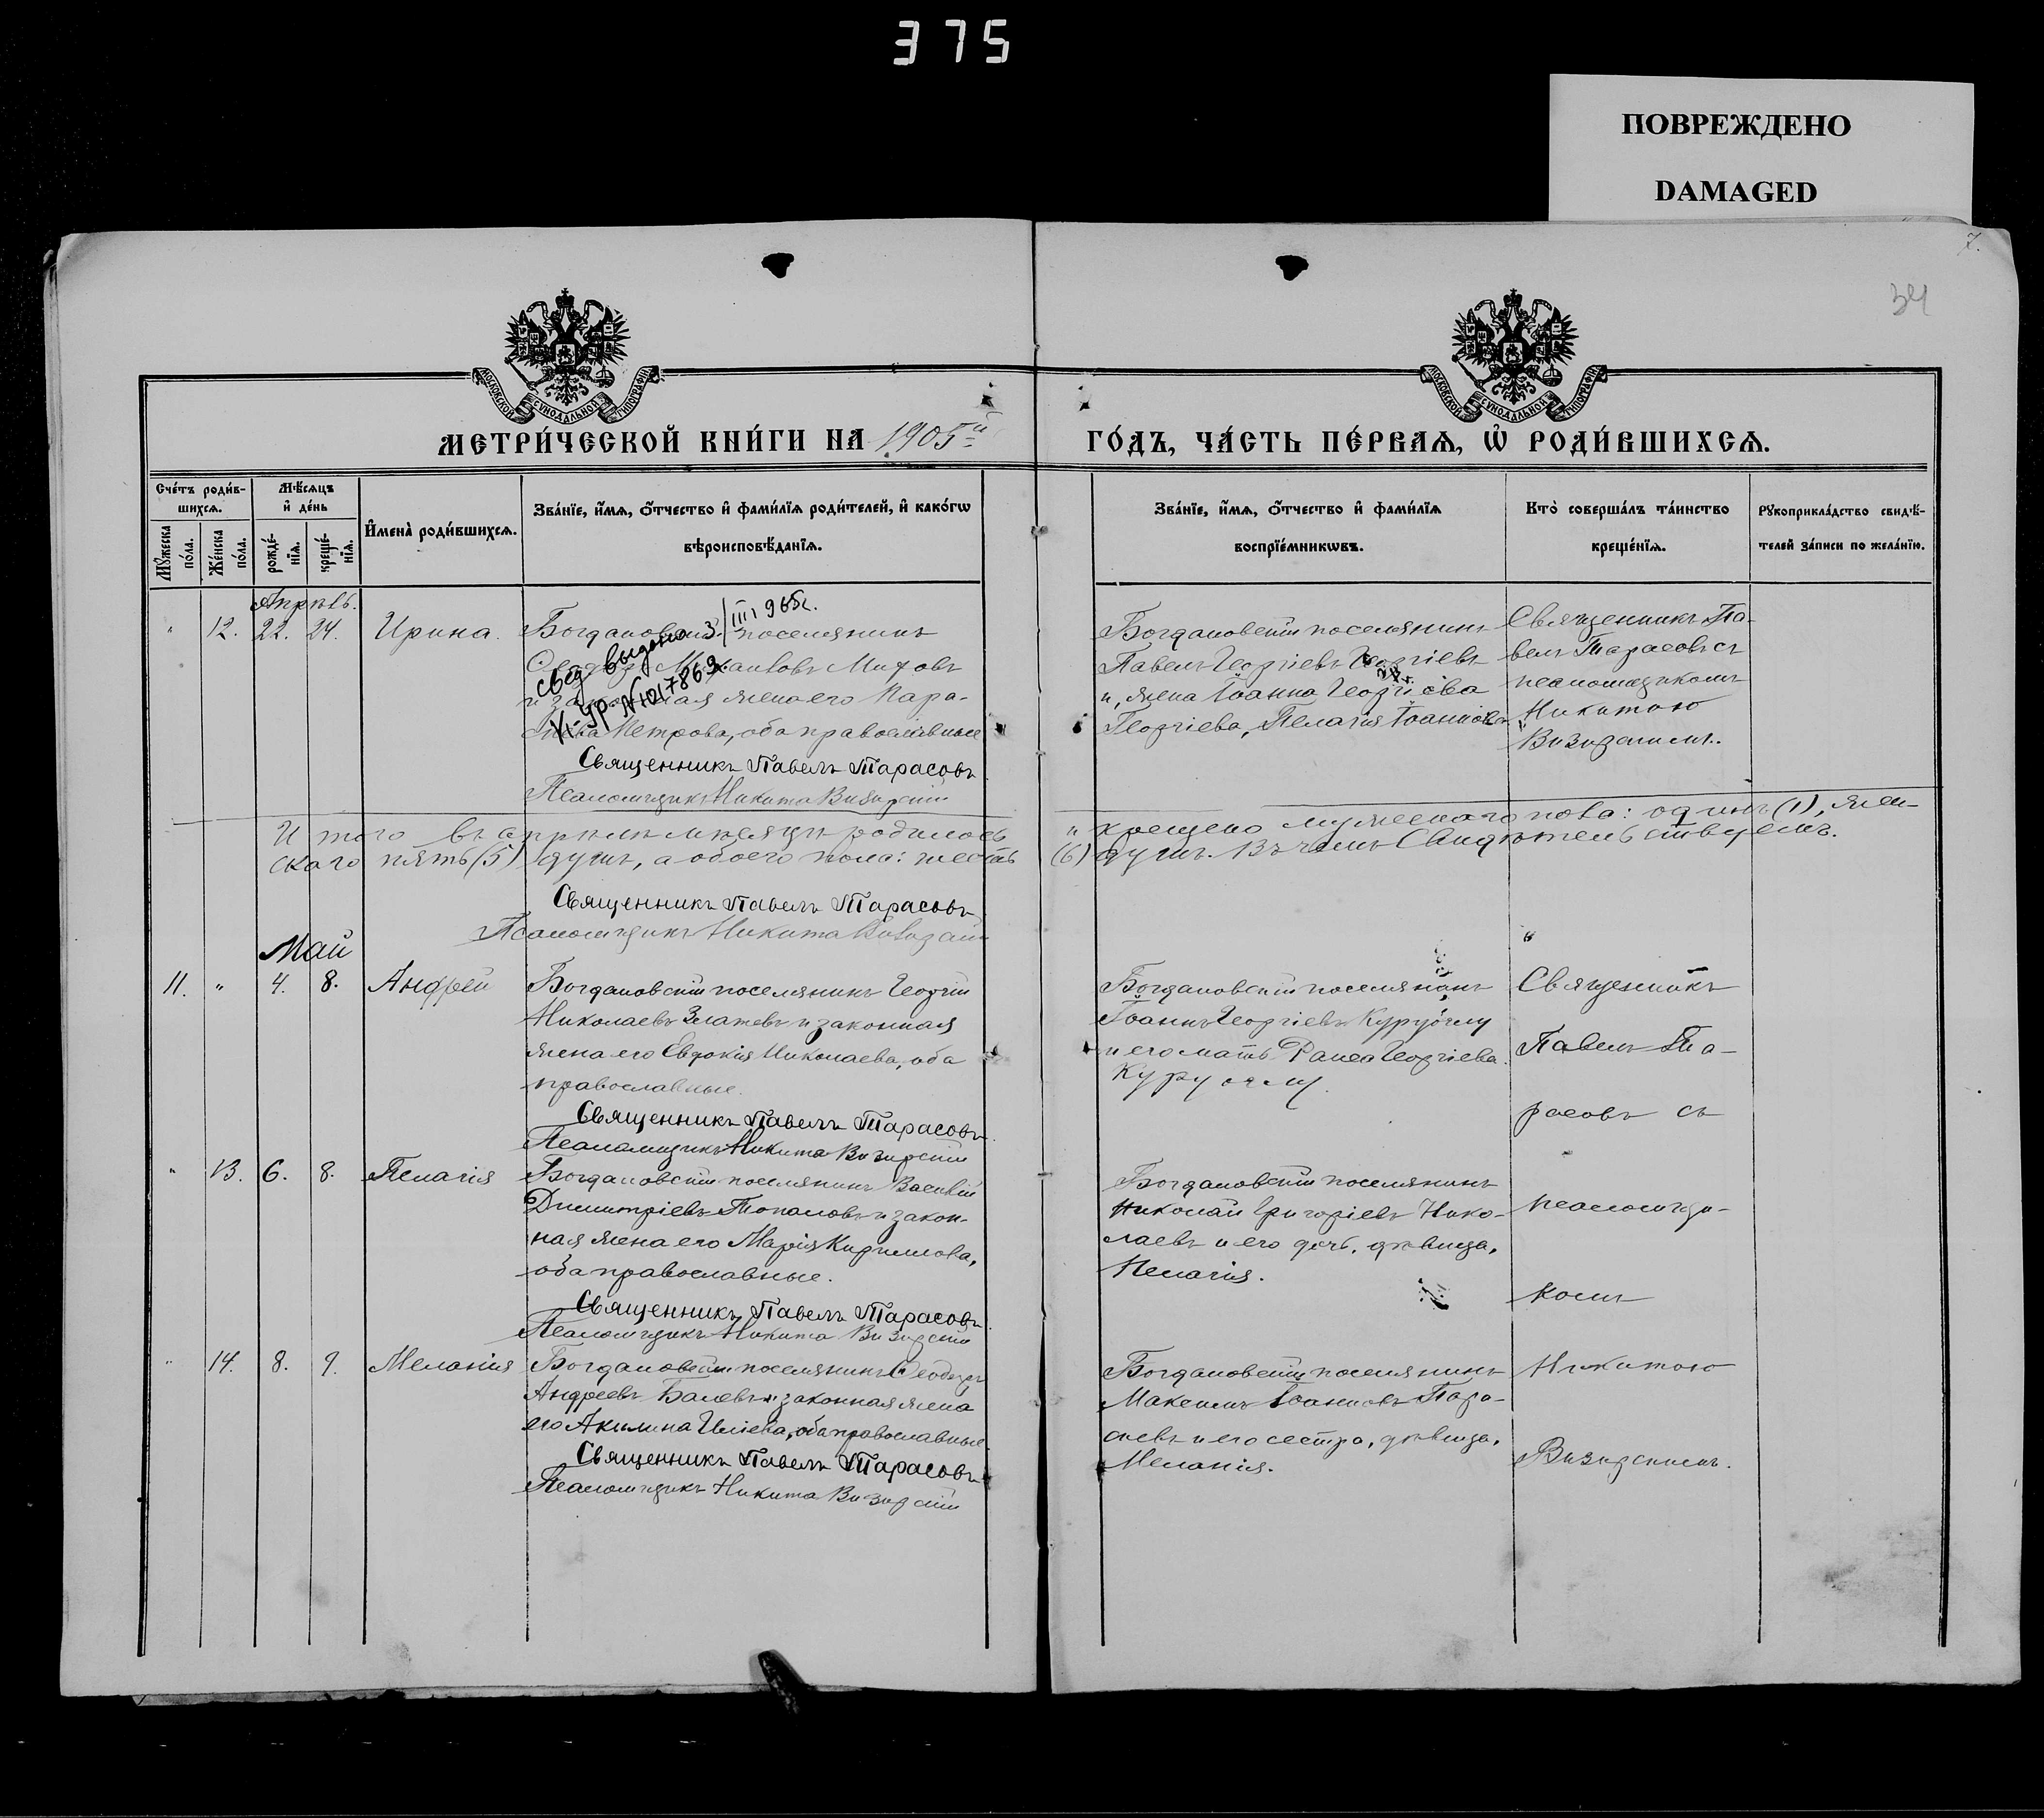 375
ПОВРЕЖДЕНО
DAMAGED
7.
34
МОСКОВСКОЙ СѴНОДАЛЬНОЙ ТИПОГРАФІИ
МОСКОВСКОЙ СѴНОДАЛЬНОЙ ТИПОГРАФІИ
МЕТРИ́ЧЕСКОЙ КНИ́ГИ НА 1905й
ГО́ДЪ, ЧА́СТЬ ПЕ́РВАѦ, Ѡ҆ РОДИ́ВШИХСѦ.
Сче́тъ роди́в-
шихсѧ.
Мꙋ́жеска
по́ла.
Же́нска
по́ла.
Мѣ́сѧцъ
и҆ де́нь
рожде́-
нїѧ.
креще́-
нїѧ.
И҆мена̀ роди́вшихсѧ.
Зва́нїе, и҆́мѧ, ѻ҆́тчество и҆ фами́лїѧ роди́телей, и҆ како́гѡ
вѣроисповѣ́данїѧ.
Зва́нїе, и҆́мѧ, ѻ҆́тчество и҆ фами́лїѧ
воспрїе́мникѡвъ.
Кто̀ соверша́лъ та́инство
креще́нїѧ.
Рꙋкоприкла́дство свидѣ́-
телей за́писи по жела́нїю.
Апрѣль.
" 12. 22. 24. Ирина.
Богдановскій поселянинъ
Михаиловъ Митовъ
и законная жена его Пара-
скева Петрова, оба православные
Священникъ Павелъ Тарасовъ
Псаломщикъ Никита Визирскій
Свид. выдано 3/III 965г.
№ 1017869
Богдановскій поселянинъ
Павелъ Георгіевъ Георгіевъ
и, жена Іоанна Георгіева
Георгіева, Пелагія Іоаннова
Священникъ Па-
велъ Тарасовъ съ
псаломщикомъ
Никитою
Визирскимъ.
Итого въ апрѣлѣ мѣсяцѣ родилось
и крещено мужескаго пола: одинъ (1), жен-
скаго пять (5) душъ, а обоего пола: шесть
(6) душъ. Въ чемъ свидѣтельствуемъ.
Священникъ Павелъ Тарасовъ
Псаломщикъ Никита Визирскій
Май
11. " 4. 8. Андрей
Богдановскій поселянинъ Георгій
Николаевъ Златевъ и законная
жена его Евдокія Николаева, оба
православные.
Священникъ Павелъ Тарасовъ
Псаломщикъ Никита Визирскій
Богдановскій поселянинъ
Іоаннъ Георгіевъ Куруочлу
и его мать Георгіева
Куруочлу.
" 13. 6. 8. Пелагія
Богдановскій поселянинъ Василій
Димитріевъ Топаловъ и закон-
ная жена его Марія Кириллова,
оба православные.
Священникъ Павелъ Тарасовъ
Псаломщикъ Никита Визирскій
Богдановскій поселянинъ
Николай Григоріевъ Нико-
лаевъ и его дочь, дѣвица,
Пелагія.
" 14. 8. 9. Меланія
Богдановскій поселянинъ Ѳеодоръ
Андреевъ Балевъ и законная жена
его Акилина Иліева, оба православные.
Священникъ Павелъ Тарасовъ
Псаломщикъ Никита Визирскій
Богдановскій поселянинъ
Максимъ Іоанновъ
и его сестра, дѣвица,
Меланія.
Священникъ
Павелъ Та-
расовъ съ
псаломщи-
комъ
Никитою
Визирскимъ.